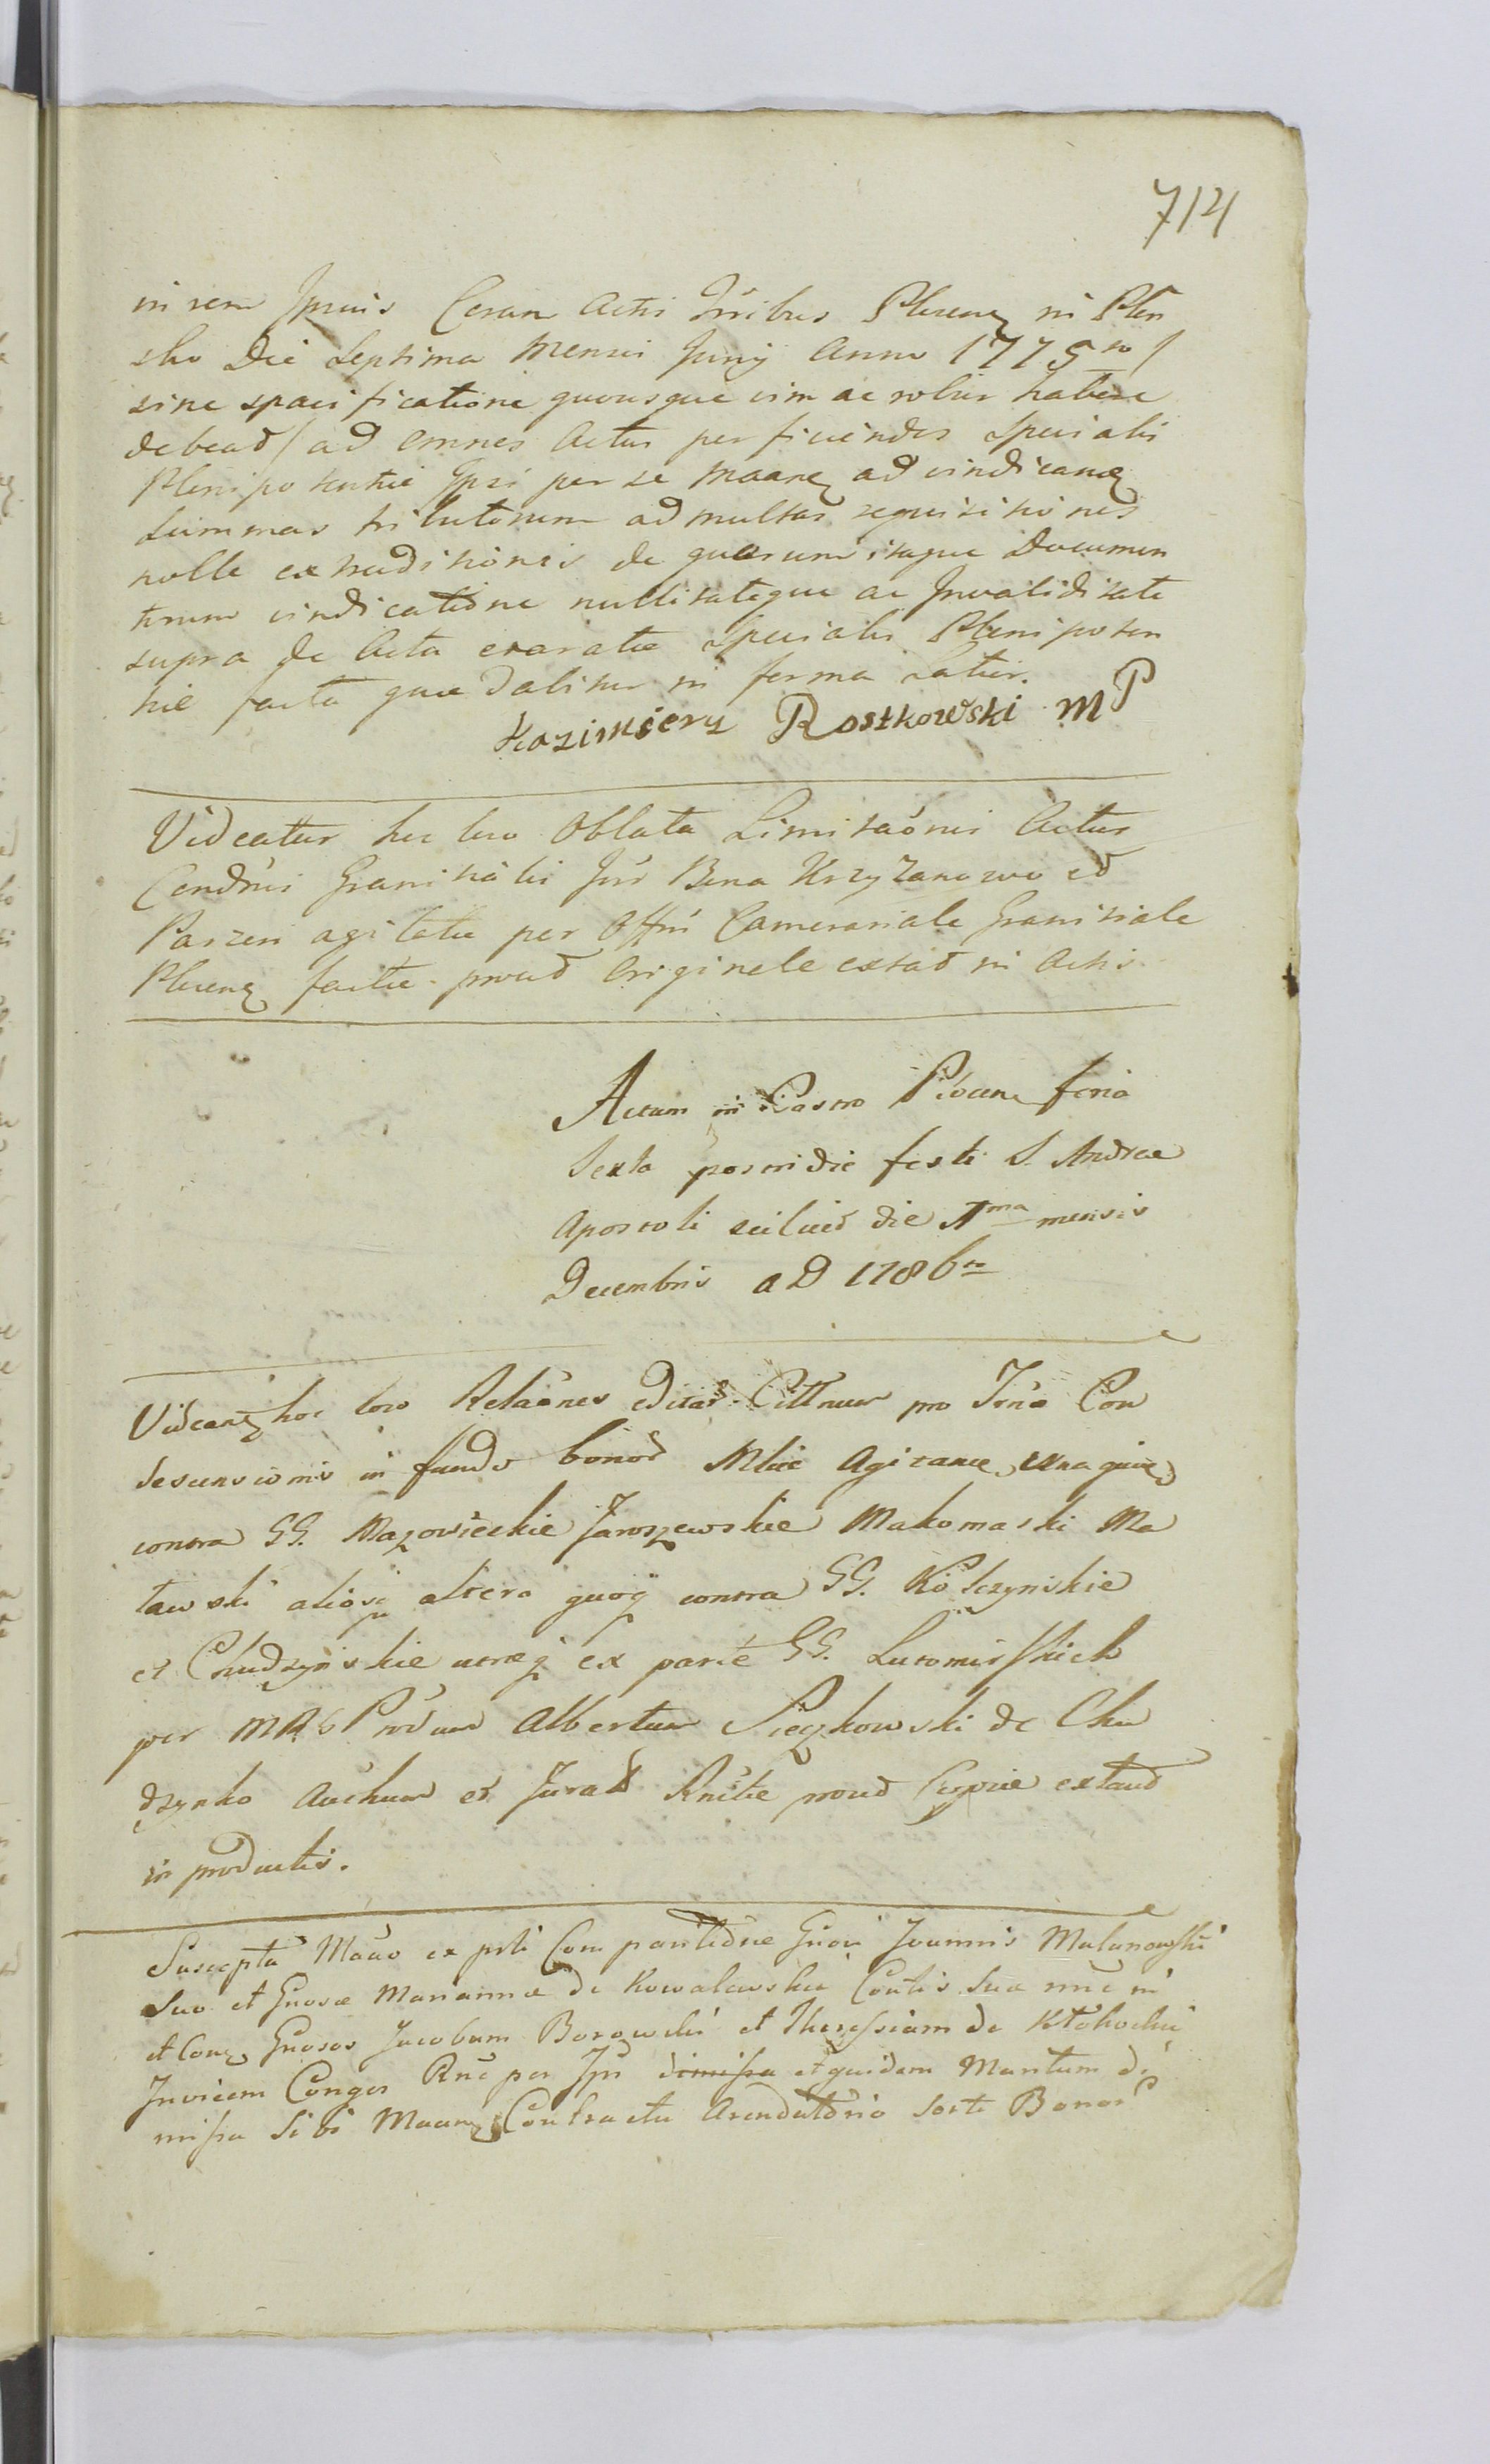 714
in rem Ipsius Coram Actis Tribus Plocen in Plon
sko Die Septima Mensis Junij Anno 1775to /
sine specificatione quousque vim ac robur habere
debead / ad omnes Actus perficiendos specialis
Plenipotentie Ipsi per se ad vindicand
summas tributorum ad multas requisitiones
nolle extraditionis de quorum itaque Documen
torum vindicatione nullitateque ac Invaliditate
supra de Acta exarate Specialis Plenipoten
tie facta que dabitur in forma Latius.
Kazimierz Rostkowski MP
Videatur hoc loco Oblata Limitaónis Actus
Condris Granitialis Inr Bona Krzyżanowo ed
Parzeń agitate per Offm Camerariale Granitiale
Plocen facte proud Originale extad in Actis
Actum in Castro Plocen feria
Sexta postridie festi S. Andreae
Apostoli scilicet die 1ma mensis
Decembris AD 1786to
Videant hoc loco Relaónes Cittnum pro Con
descensionis in fundo bonor agitande una quid
contra GG. Mazowieckie Jaroszewskie Makomaski Ma
tawski aliosq altera quoq contra GG. Kólczynskie
et Chudzynskie utraq ex parte GG. Lutomirskich
per Albertum Pieczkowski de Chu
dzynko et Jurad proud Copiae extand
in productis.
Suscepta ex Comparitióne Gnosi Joannis Malanowski
suo et Gnosae Mariannae de Kowalewskie Contis Sua
et Gnosos Jacobum Borowski et Theressiam de Kłobockie
Invicem Conges per dimissa et quidem Maritum di
missa Sibi Contractu Arendatorio sorte Bonor